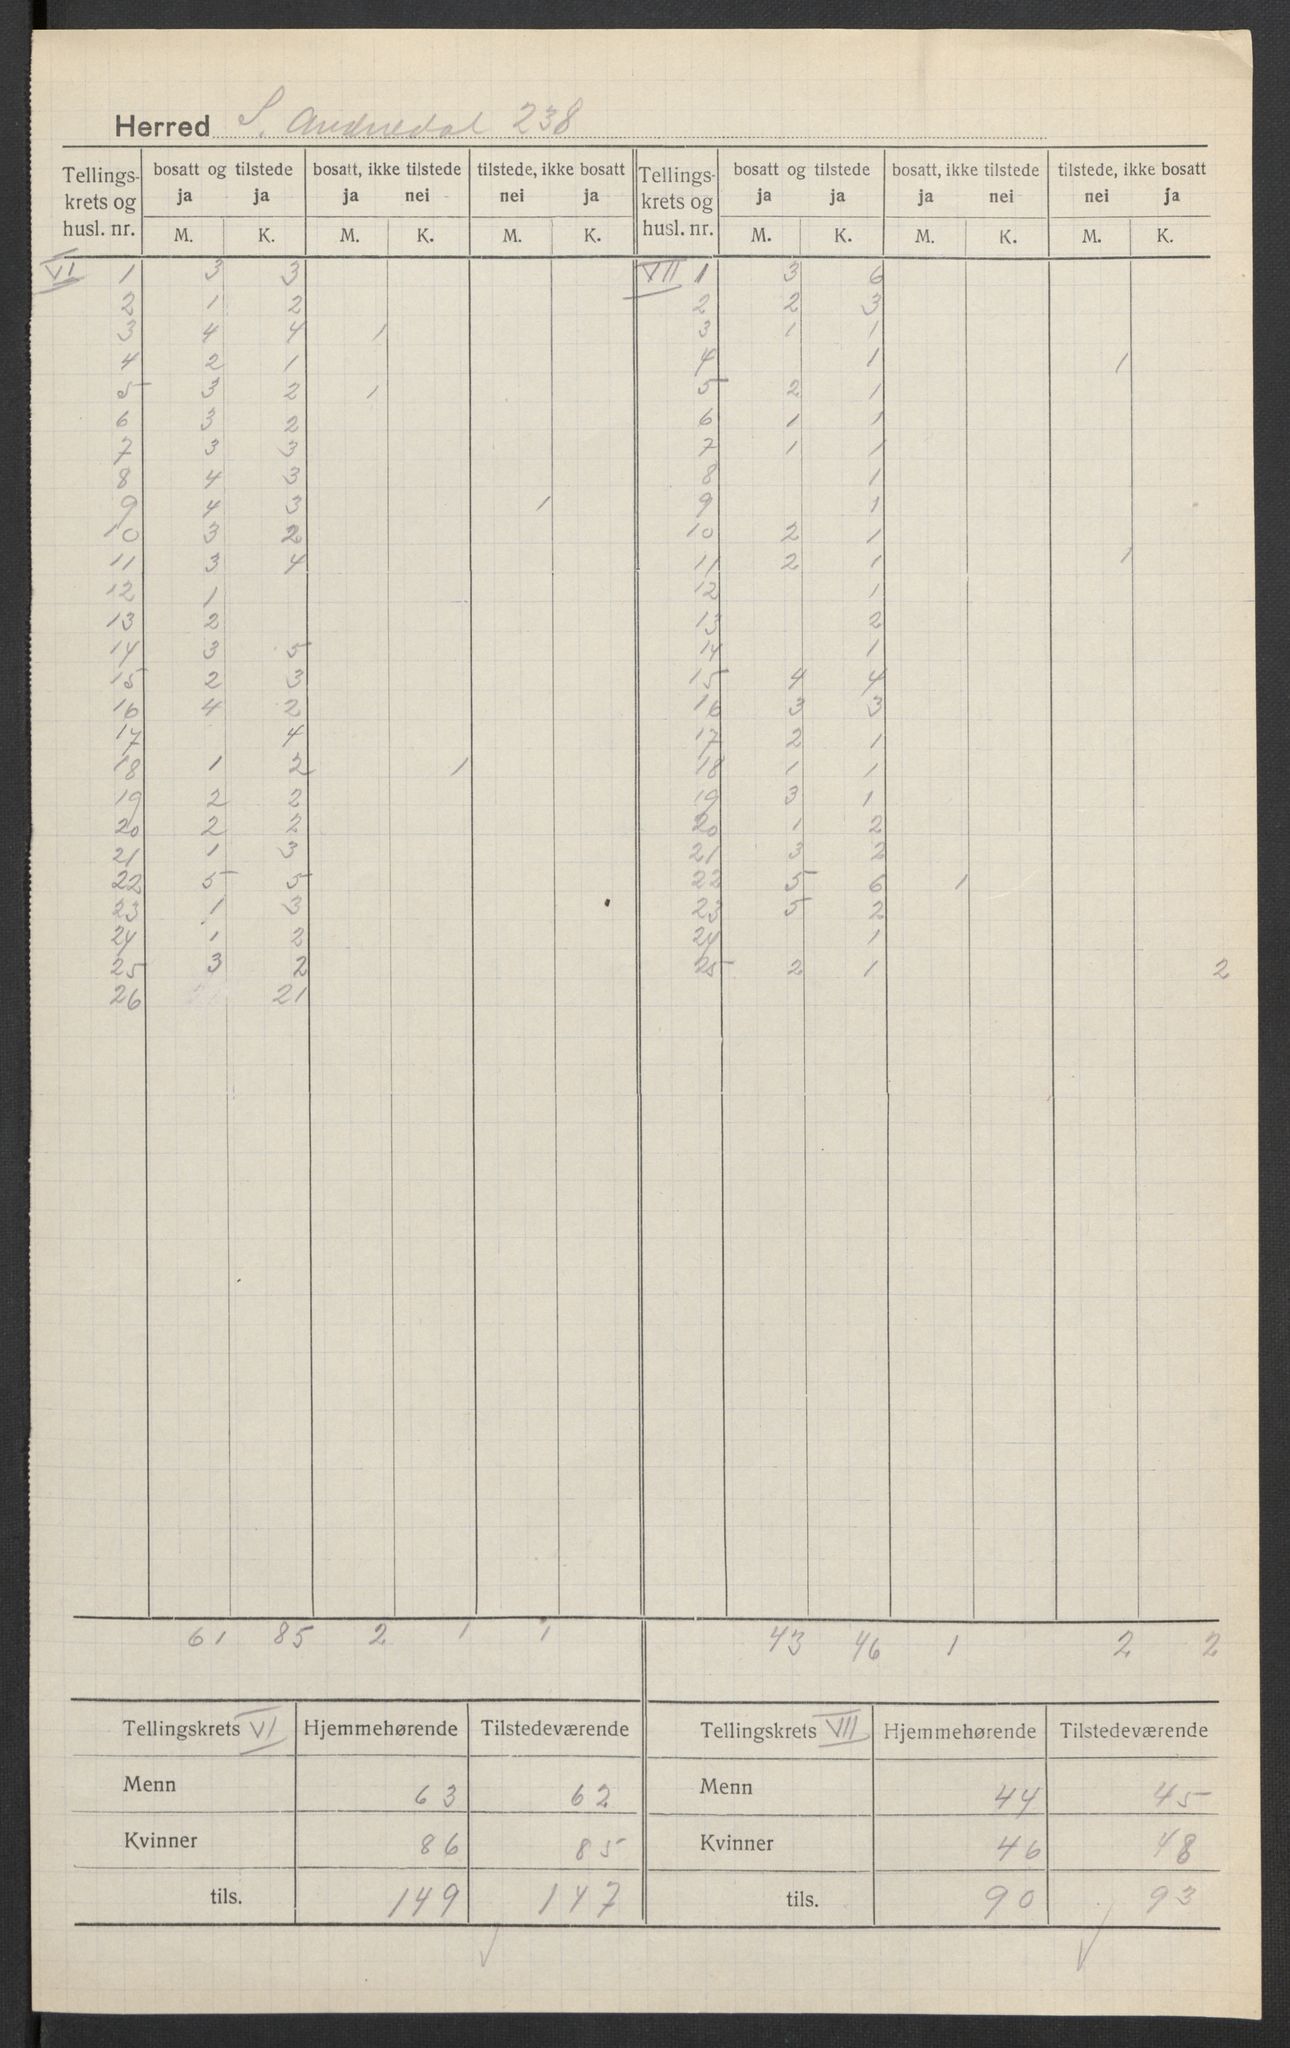 Herred S. Audnedal 238
Tellings- krets og husl. nr. | bosatt og tilstede ja ja | bosatt, ikke tilstede ja nei | tilstede, ikke bosatt nei ja | Tellings- krets og husl. nr. | bosatt og tilstede ja ja | bosatt, ikke tilstede ja nei | tilstede, ikke bosatt nei ja
M. K. M. K. M. K. M. K. M. K. M. K.
VI 1 3 3 VII 1 3 6
2 1 2 2 2 3
3 4 4 1 3 1 1
4 2 1 4 1 1
5 3 2 1 5 2 1
6 3 2 6 1 1
7 3 3 7 1 1
8 4 3 8 1
9 4 3 1 9 1
10 3 2 10 2 1
11 3 4 11 2 1 1
12 1 12 1
13 2 13 2
14 3 5 14 1
15 2 3 15 4 4
16 4 2 16 3 3
17 4 17 2 1
18 1 2 1 18 1 1
19 2 2 19 3 1
20 2 2 20 1 2
21 1 3 21 3 2
22 5 5 22 5 6 1
23 1 3 23 5 2
24 1 2 24 1
25 3 2 25 2 1 2
26 21
61 85 2 1 1 43 46 1 2 2
Tellingskrets VI Hjemmehørende Tilstedeværende Tellingskrets VII Hjemmehørende Tilstedeværende
Menn 63 62 Menn 44 45
Kvinner 86 85 Kvinner 46 48
tils. 149 147 tils. 90 93